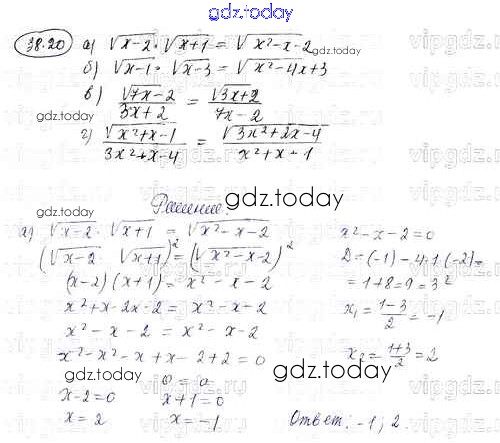 gdz.today
38.20 а) √x-2 · √x+1 = √x²-x-2
gdz.today
б) √x-1 · √x-3 = √x²-4x+3
в) √7x-2 / 3x+2 = √3x+2 / 7x-2
gdz.today
г) √x²+x-1 / 3x²+x-4 = √3x²+2x-4 / x²+x+1
gdz.today
Решение:
gdz.today
а) √x-2 · √x+1 = √x²-x-2
(√x-2 √x+1)² = (√x²-x-2)²
(x-2)(x+1) = x²-x-2
x²+x-2x-2 = x²-x-2
x²-x-2 = x²-x-2
x²-x²-x+x-2+2=0
0=0
x-2=0 x+1=0
x=2 x=-1
x²-x-2=0
D=(-1)-4·1·(-2)=
=1+8=9=3²
x₁=1-3/2=-1
x₂=1+3/2=2
Ответ: -1; 2.
gdz.today
gdz.today